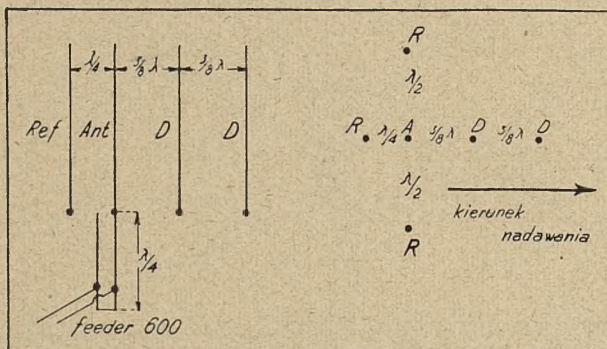 λ/4 3/8 λ 3/8 λ
Ref Ant D D
λ/4
feeder 600
R
λ/2
R λ/4 A 3/8 λ D 3/8 λ D
λ/2
R
kierunek
nadawania